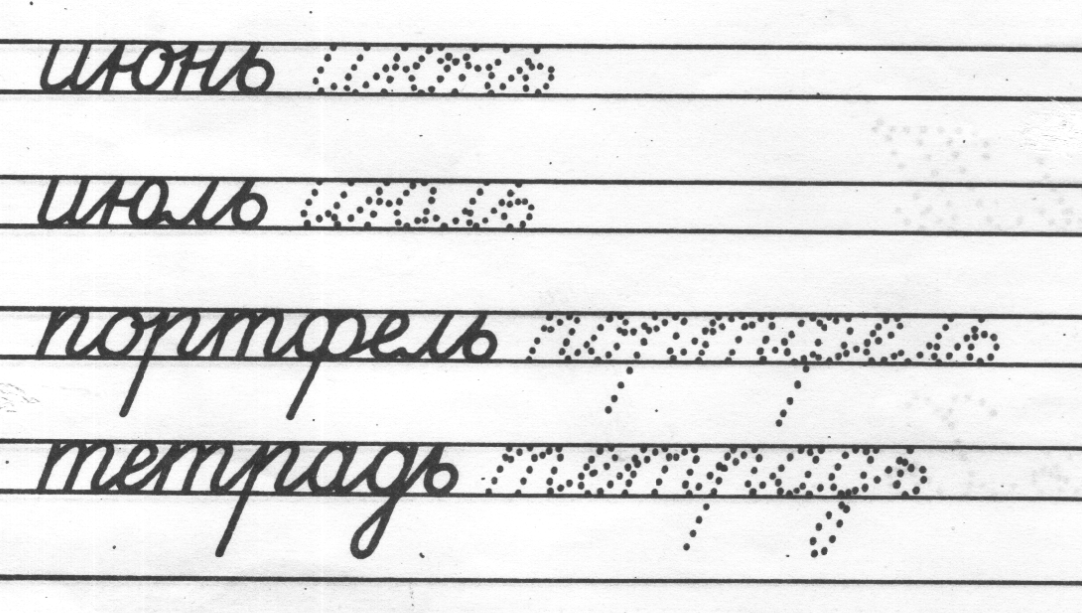 июнь июнь
июль июль
портфель портфель
тетрадь тетрадь